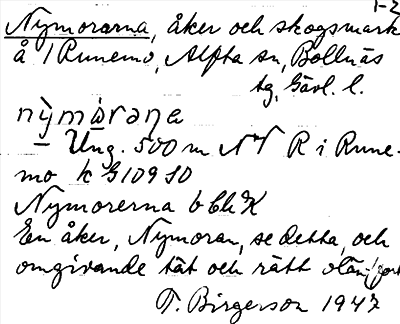 1-2
Nymorarna, åker och skogsmark
å 1 Runemo, Alfta sn, Bollnäs
tg, Gävl. l.
nỳmòrana
– Ung. 500 m NV R i Rune-
mo k G 109 SO
Nymorerna b Ch K
En åker, Nymoran, se detta, och
omgivande tät och rätt
T. Birgerson 1947